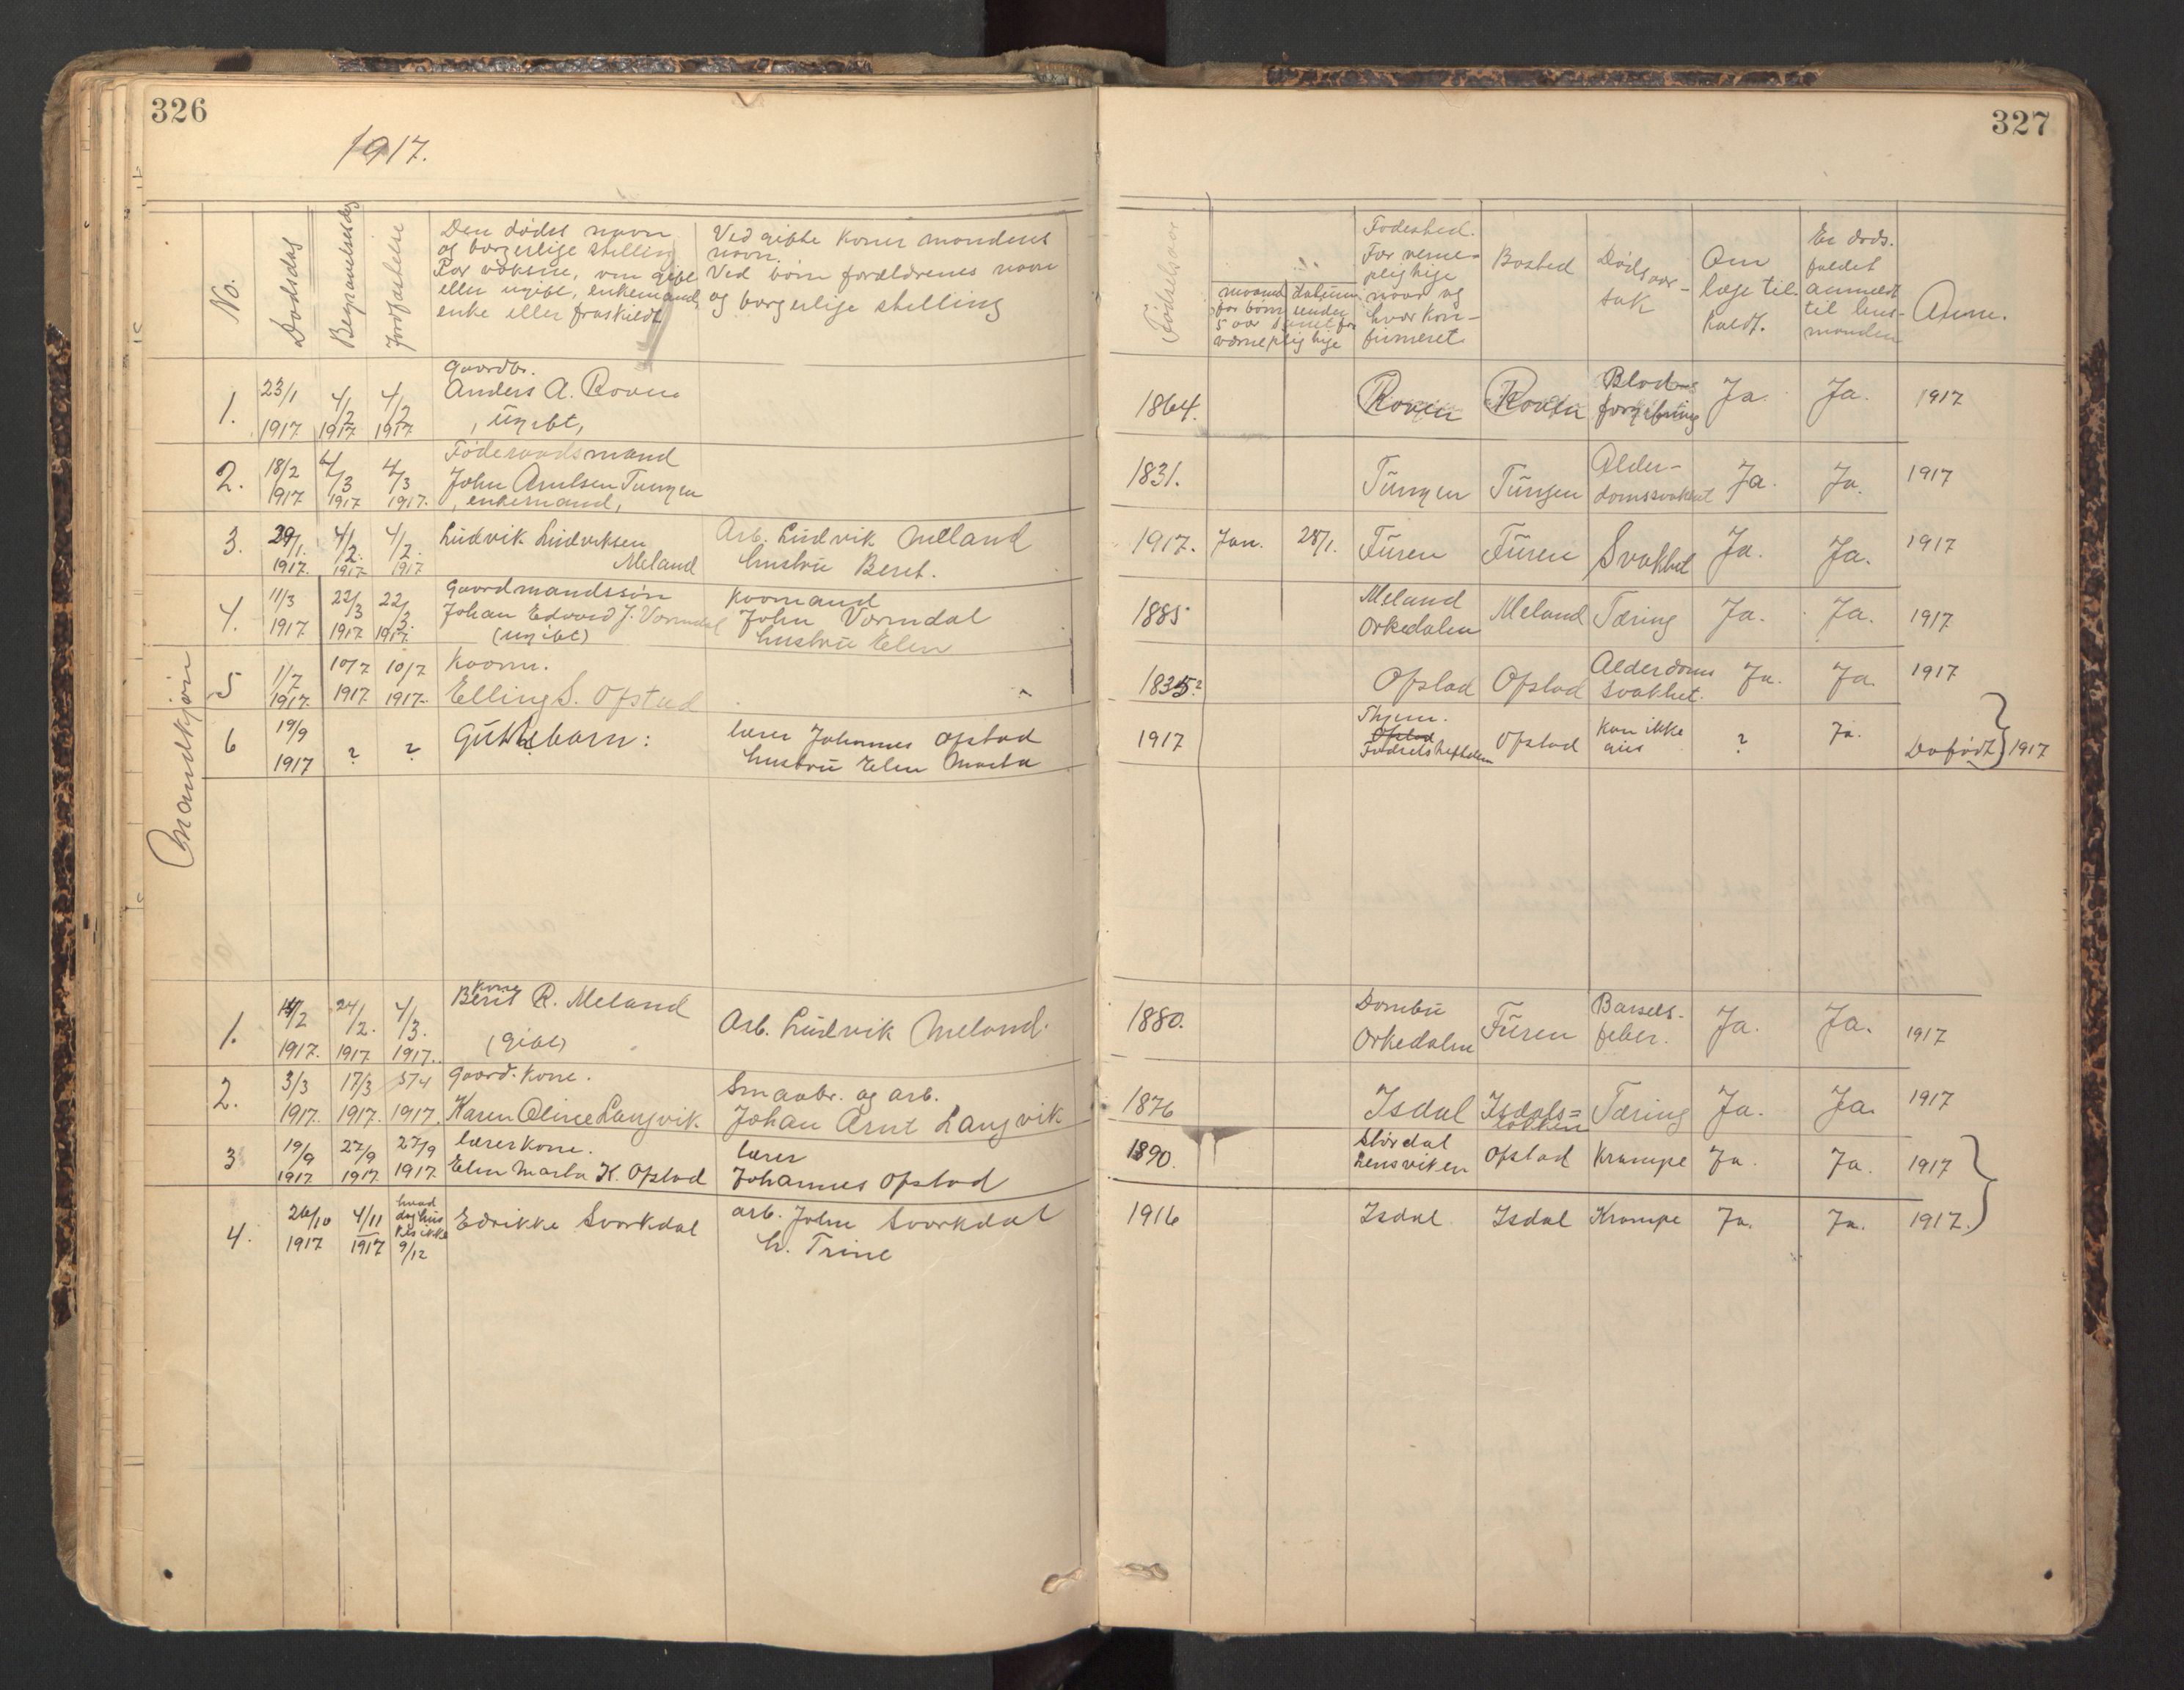 326
1917.
No.
Dødsdag
Begravelsesdag
Jordfæstelse
Den dødes navn
og borgerlige stilling
For voksne, om gift
eller ugift, enkemand,
enke eller fraskildt
Ved gifte koner mandens
navn.
Ved børn forældrenes navn
og borgerlige stilling
Mandkjøn
1.
23/1
1917
4/2
1917
4/2
1917
Gaardbr.
Anders A. Roven
, ugift,
2.
18/2
1917
4/3
1917
4/3
1917.
Føderaadsmand
John Arnlsen Tungen
, enkemand,
3.
29/1.
1917.
4/2.
1917
4/2.
1917
Ludvik Ludviksen
Meland
Arb. Ludvik Meland
hustru Beret.
4.
11/3
1917
22/3
1917
22/3.
1917.
Gaardmandssøn
Johan Edvard J. Vormdal
(ugift)
Kaarmand
John Vormdal
hustru Elen
5
1/7
1917.
10/7
1917
10/7
1917.
Kaarm.
Elling S. Ofstad
6
19/9
1917
?
?
Guttebarn:
lærer Johannes Opstad
hustru Elen Marta
1.
14/2
1917.
24/2.
1917
4/3.
1917.
Kone
Berit R. Meland
(gift)
Arb. Ludvik Meland.
2.
3/3
1917.
17/3
1917.
1917.
Gaard. kone.
Karen Oline Langvik.
Smaabr. og arb.
Johan Arnt Langvik
3
19/9
1917
27/9
1917.
27/9
1917
lærerkone.
Elen Marta K. Opstad
lærer
Johannes Opstad
4.
26/10
1917
4/11
1917
hvad
dag hus
kes ikke
9/12
Edrikke Svorkdal
arb. John Svorkdal
h. Trine
327
Fødselsaar
maaned
datum
for børn under
5 aar samt for
værnepligtige
Fødested.
For værne-
pligtige
navn og
hvor kon-
firmeret.
Bosted
Dødsaar-
sak
Om
læge til-
kaldt.
Er døds-
faldet
anmeldt
til lens-
manden
Anm.
1864.
Roven
Roven
Blod-
forgiftning
Ja.
Ja.
1917
1831.
Tungen
Tungen
Alder-
domssvakhet
Ja.
Ja.
1917
1917.
Jan.
28/1.
Furen
Furen
Svakhed
Ja.
Ja.
1917
1885
Meland
Orkedalen
Meland
Tæring
Ja.
Ja.
1917
1835?
Opstad
Opstad
Alderdoms
svakhet.
Ja.
Ja.
1917
1917
Opstad
Opstad
Kan ikke
gies
?
Ja.
Dødfødt
1917
1880.
Dombu
Orkedalen
Furen
Barsels-
feber.
Ja.
Ja.
1917
1876
Isdal
Isdals=
løkken
Tæring
Ja.
Ja.
1917
1890.
Størdal
Lensviken
Opstad
Krampe
Ja.
Ja.
1917
1916
Isdal
Isdal
Krampe
Ja.
Ja.
1917.